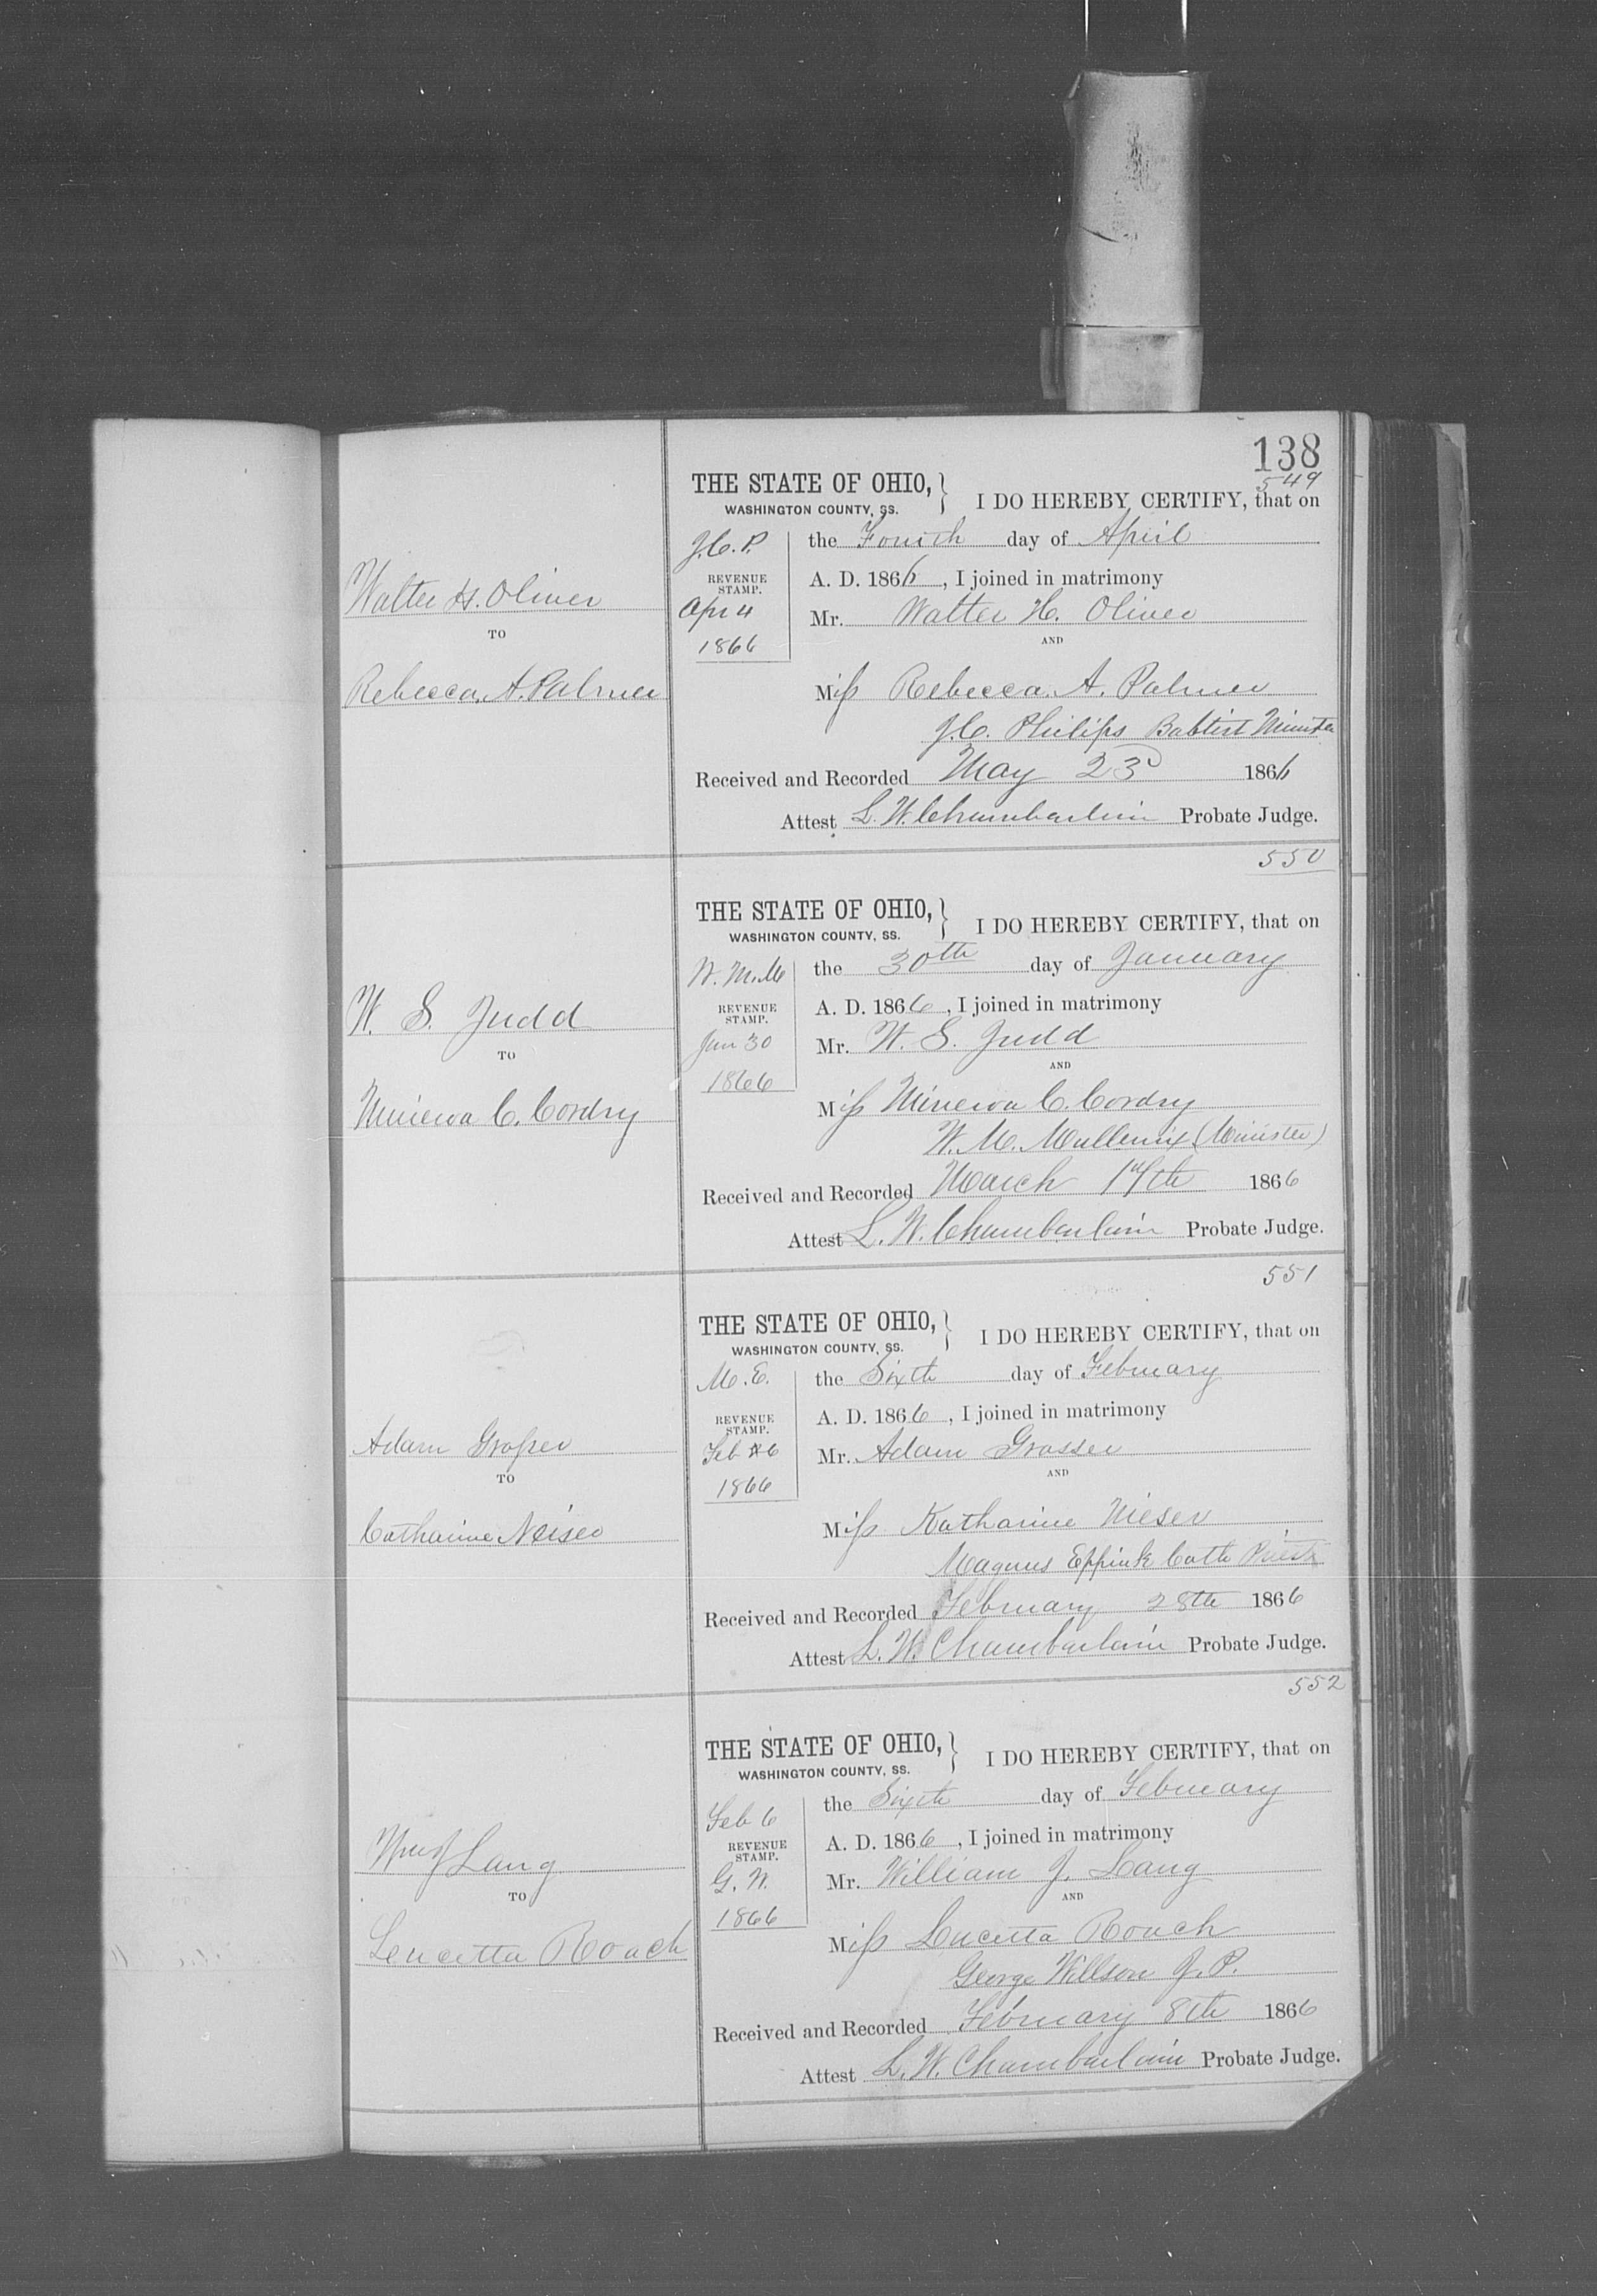 138
549
THE STATE OF OHIO, } I DO HEREBY CERTIFY, that on
WASHINGTON COUNTY, SS.
J.C.P. the Fourth day of April
REVENUE STAMP. A. D. 1866, I joined in matrimony
Apr 4 Mr. Walter H. Oliver
1866 AND
Walter H. Oliver
TO
Rebecca A. Palmer
Miss Rebecca. A. Palmer
J.C. Philips Babtist Minister
Received and Recorded May 23d 1866
Attest L. W. Chamberlain Probate Judge.
550
THE STATE OF OHIO, } I DO HEREBY CERTIFY, that on
WASHINGTON COUNTY, SS.
W. M. M the 30th day of January
REVENUE STAMP. A. D. 1866, I joined in matrimony
Jan 30 Mr. W. S. Judd
1866 AND
W. S. Judd
TO
Minerva C. Cordry
Miss Minerva C. Cordry
W. M. Mullenix (Minister)
Received and Recorded March 17th 1866
Attest L. W. Chamberlain Probate Judge.
551
THE STATE OF OHIO, } I DO HEREBY CERTIFY, that on
WASHINGTON COUNTY, SS.
M. E. the Sixth day of February
REVENUE STAMP. A. D. 1866, I joined in matrimony
Feb 6 Mr. Adam Grosser
1866 AND
Adam Grosser
TO
Catharine Neiser
Miss Katharine Nieser
Magnus Eppink Cath Priest
Received and Recorded February 28th 1866
Attest L. W. Chamberlain Probate Judge.
552
THE STATE OF OHIO, } I DO HEREBY CERTIFY, that on
WASHINGTON COUNTY, SS.
Feb 6 the Sixth day of February
REVENUE STAMP. A. D. 1866, I joined in matrimony
G. W. Mr. William J. Lang
1866 AND
Wm J Lang
TO
Leucetta Roach
Miss Lucetta Roach
George Willson J. P.
Received and Recorded February 8th 1866
Attest L. W. Chamberlain Probate Judge.